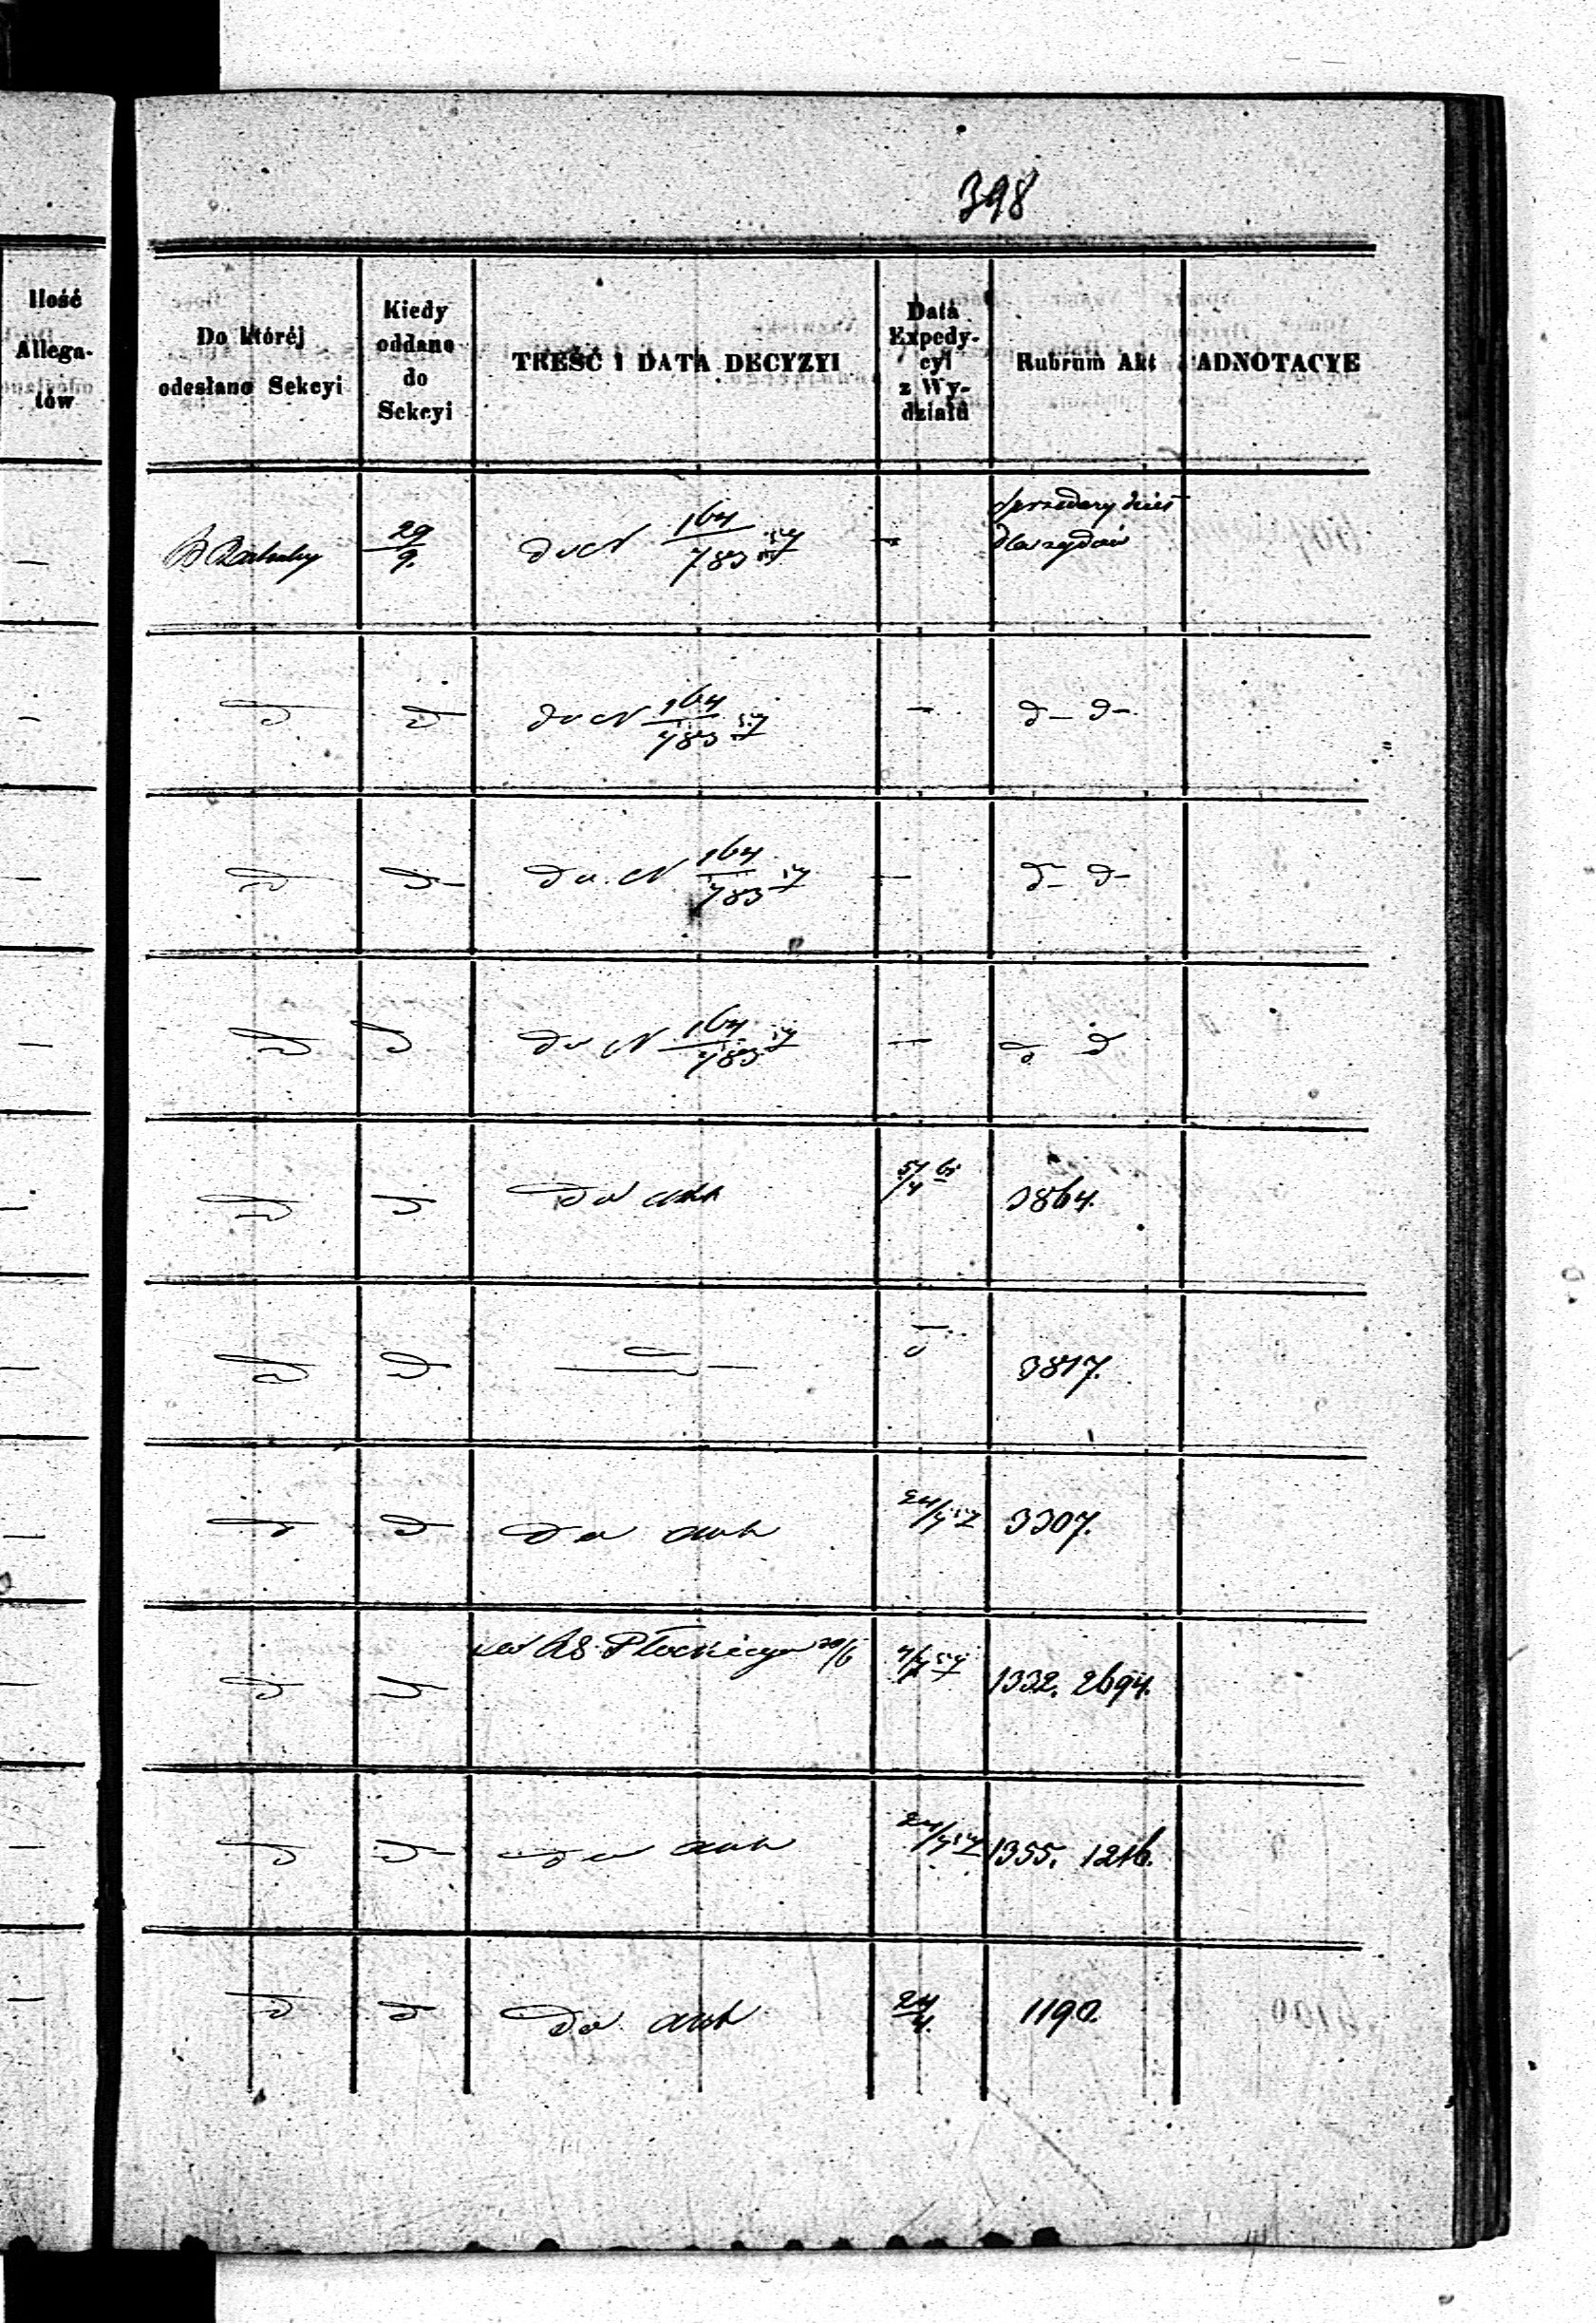 398
Ilość
Allega-
tów
Do któréj
odesłano Sekcyi
Kiedy
oddano
do
Sekcyi
TREŚĆ I DATA DECYZYI
Data
Expedy-
cyi
z Wy-
działu
Rubrum Akt
ADNOTACYE
29/9. do N 164/783 57 —
dla żydów
d d do N 164/783 57 — d- d-
d d- do N 164/783 57 — d- d-
d d do N 164/783 57 — d d
d d do akt 3864.
d d — 3817.
d d do akt 24/4 57 3307.
d d Płockiego 20/6 4/7 57 1332. 2694.
d d- do akt 24/4 57 1355. 1216.
d d do akt 24/4. 1190.